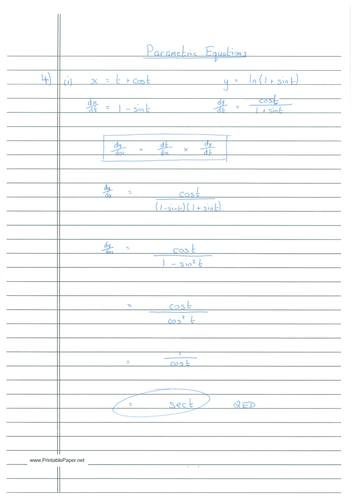 Parametric Equations
4) (i) x = t + cost y = ln(1 + sint)
dx/dt = 1 - sint dy/dt = cost/(1 + sint)
dy/dx = dt/dx × dy/dt
dy/dx = cost/((1-sint)(1+sint))
dy/dx = cost/(1 - sin²t)
= cost/(cos²t)
= 1/cost
= sect QED
www.PrintablePaper.net